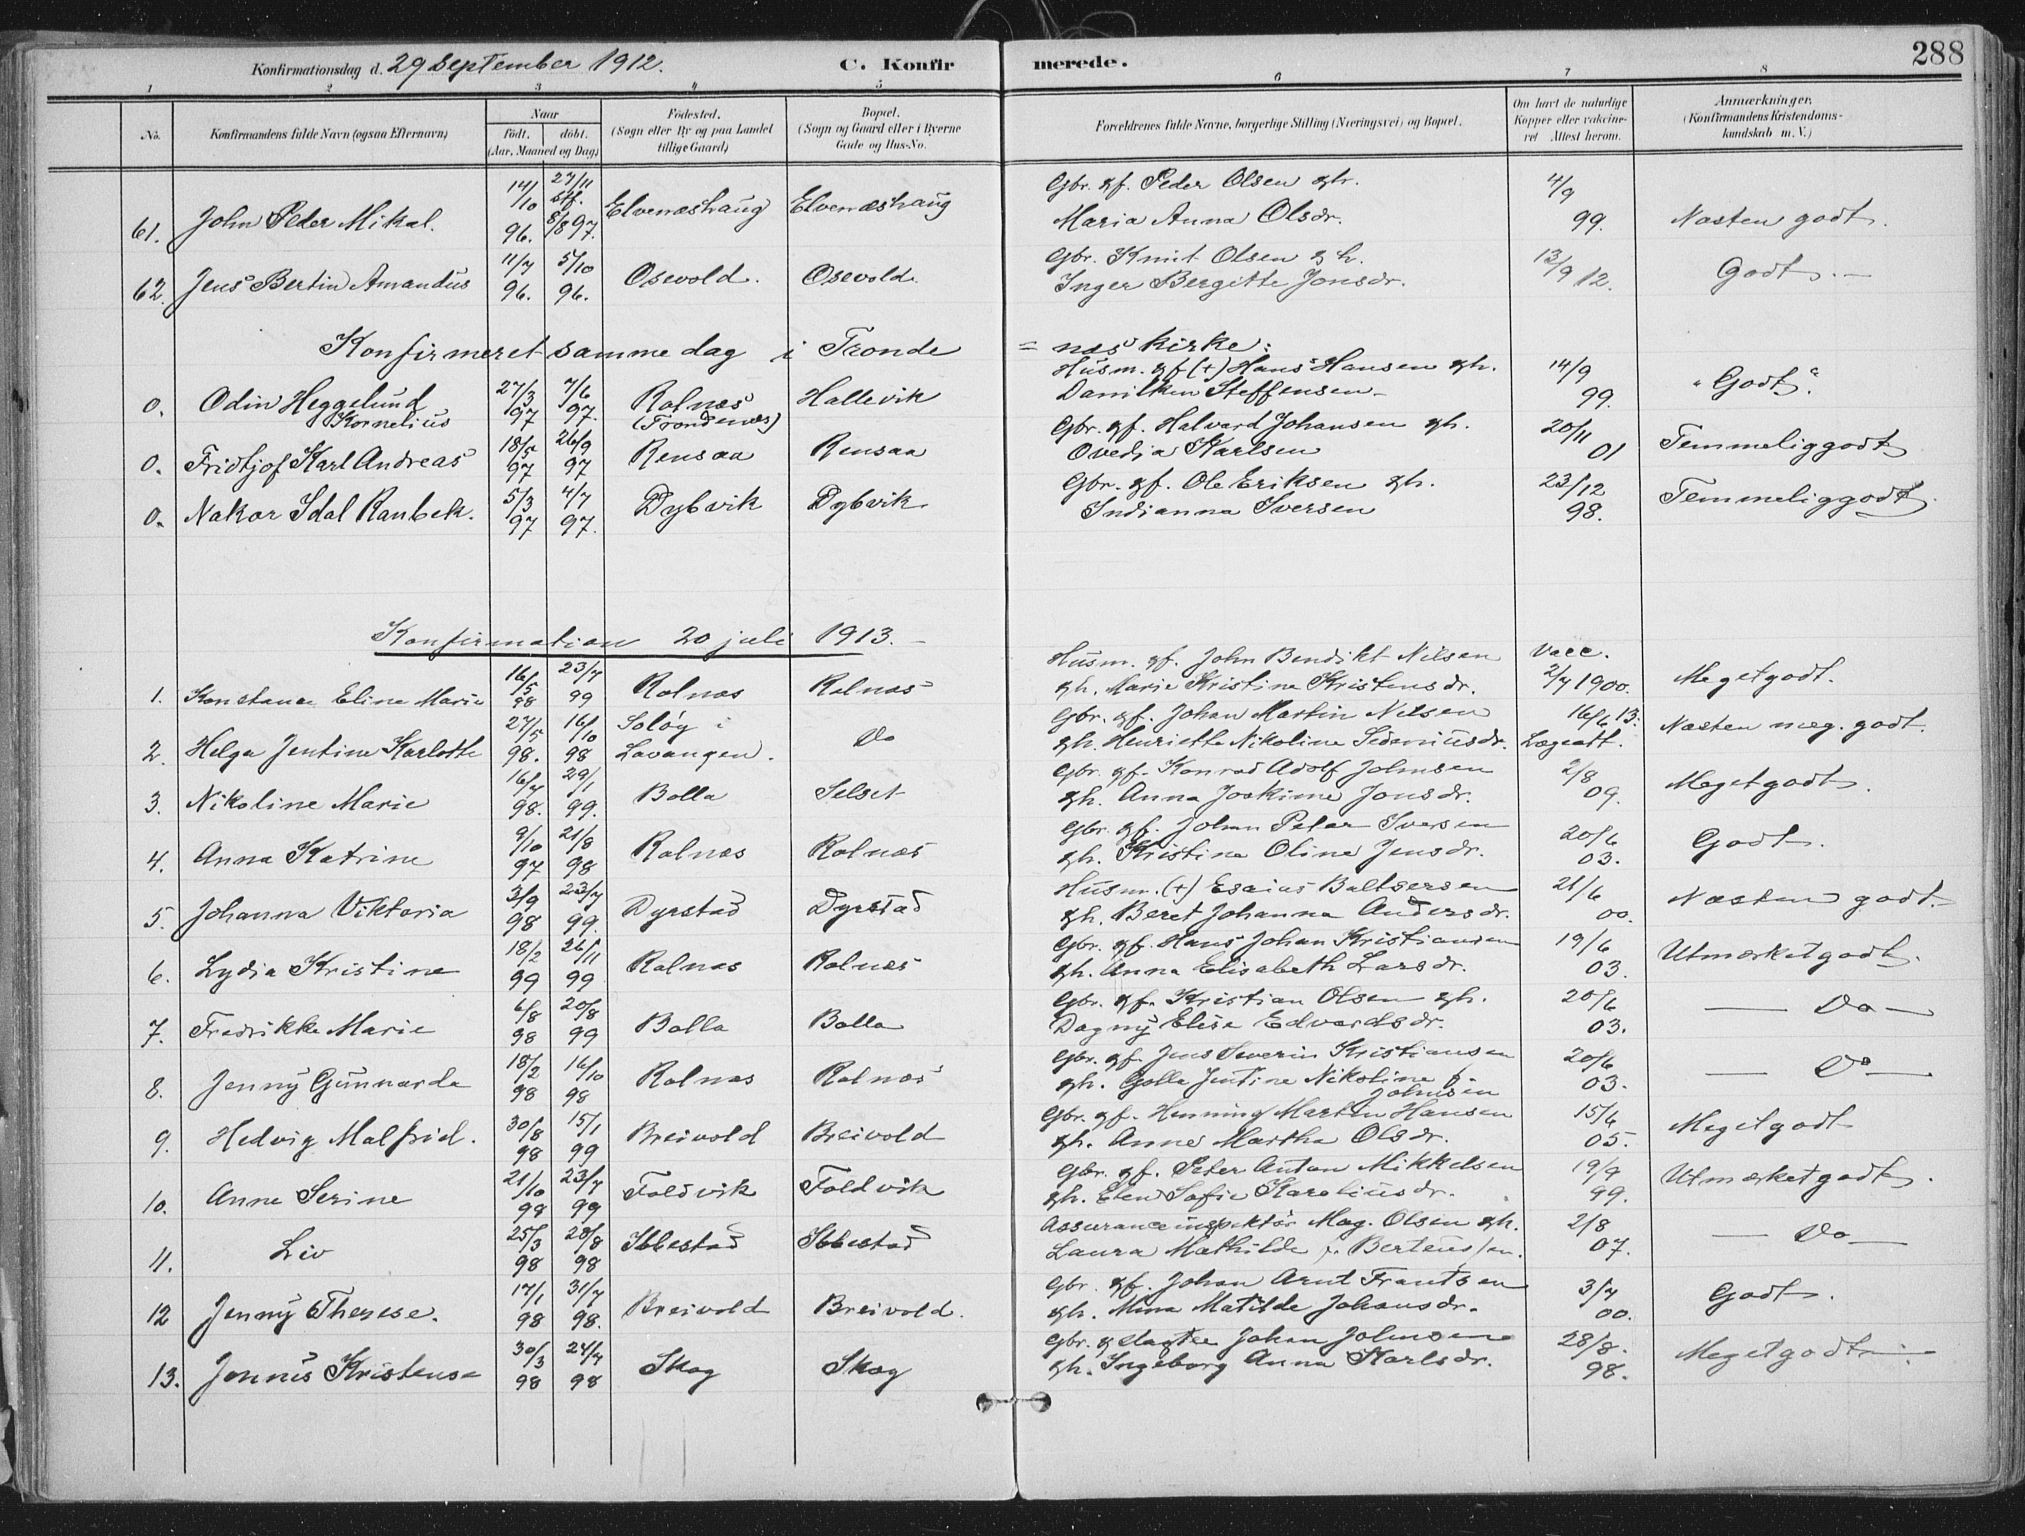 288
Konfirmationsdag d. 29 September 1912. C. Konfirmerede.
1 2 3 4 5 6 7 8
No. Konfirmandens fulde Navn (ogsaa Efternavn) Naar født. døbt. (Aar, Maaned og Dag) Fødested. (Sogn eller By og paa Landet tillige Gaard) Bopæl. (Sogn og Gaard eller i Byerne Gade og Hus-No. Forældrenes fulde Navne, borgerlige Stilling (Næringsvei) og Bopæl. Om havt de naturlige Kopper eller vaccineret Attest herom. Anmærkninger. (Konfirmandens Kristendomskundskab m. V.)
61. John Peder Mikal. 14/10 96. 27/11 stf. 8/8 97. Elveneshaug Elveneshaug Gbr. gf. Peder Olsen gh. Maria Anna Olsdr. 4/9 99. Næsten godt.
62. Jens Bertin Amandus 11/7 96. 5/10 96. Osevold. Osevold. Gbr. Knut Olsen gh. Inger Bergitte Jonsdr. 13/9 12. Godt. -
Konfirmeret samme dag i Tronde = nes kirke:
0. Odin Heggelund Kornelius 27/3 97 7/6 97. Rolnæs (Trondenæs) Hallevik Husm. gf (+) Hans Hansen gh. Danilken Steffensen 14/9 99. "Godt."
0. Fridtjof Karl Andreas 18/5 97 26/9 97 Rensaa Rensaa Gbr. gf. Halvard Johansen gh. Ovedia Karlsen 20/11 01 Temmelig godt
0. Nakor Idal Ranbek. 5/3 97 4/7 97. Dybvik Dybvik Gbr. gf. Ole Eriksen gh. Indianna Iversen 23/12 98. Temmelig godt.
Konfirmation 20 juli 1913. -
1. Konstance Eline Marie 16/5 98 23/7 99 Rolnæs Rolnæs Husm. gf. John Bendikt Nilsen gh. Marie Kristine Kristensdr. Vacc. 2/7 1900. Meget godt.
2. Helga Jentine Karlotte 27/5 98. 16/10 98 Soløy i Lavangen. Do Gbr. gf. Johan Martin Nilsen gh. Henriette Nikoline Sideniusdr. 16/6 13. Lægeatt. Næsten meg. godt.
3. Nikoline Marie 16/7 98. 29/1 99. Bolla Selset Gbr. gf. Konrad Adolf Johnsen gh. Anna Joakime Jonsdr. 2/8 09. Meget godt.
4. Anna Katrine 9/10 97 21/8 98 Rolnæs Rolnæs Gbr. gf. Johan Peter Iversen gh. Kristine Oline Jensdr. 20/6 03. Godt.
5. Johanna Viktoria 3/9 98 23/7 99. Dyrstad Dyrstad Husm. (+) Esaias Baltsersen gh. Beret Johanna Andersdr. 21/6 00. Næsten godt.
6. Lydia Kristine 18/2 99 26/11 99 Rolnæs Rolnæs Gbr. gf. Hans Johan Kristiansen gh. Anna Elisabeth Larsdr. 19/6 03. Utmærket godt.
7. Fredrikke Marie 6/8 98 20/8 99 Bolla Bolla Gbr. gf. Kristian Olsen gh. Dagny Elise Edvardsdr. 20/6 03. - Do -
8. Jenny Gunnarda 18/2 98 16/10 98 Rolnæs Rolnæs Gbr. gf. Jens Severin Kristiansen gh. Golla Jentine Nikoline f. Johnsen 20/6 03. - Do -
9. Hedvig Malfrid. 30/8 98 15/1 99 Breivold Breivold Gbr. gf. Henning Martin Hansen gh. Anne Martha Olsdr. 15/6 05. Meget godt
10. Anne Serine 21/10 98 23/7 99 Foldvik Foldvik Gbr. gf. Peter Antan Mikkelsen gh. Elen Sofie Karoliusdr. 19/9 99. Utmærket godt.
11. Liv 25/3 98 28/8 98 Ibbestad Ibbestad Assuranceinspektør Mag. Olsen gh. Laura Mathilde f. Berteussen. 2/8 07. - Do -
12 Jenny Therese. 17/1 98 31/7 98. Breivold Breivold. Gbr. gf. Johan Arnt Frantsen gh. Mina Matilde Johansdr. 3/7 00. Godt.
13. Jennis Kristense 30/3 98 24/7 98 Skog Skog Gbr. g Johan Johnsen gh. Ingeborg Anna Karlsdr. 28/8. 98. Meget godt